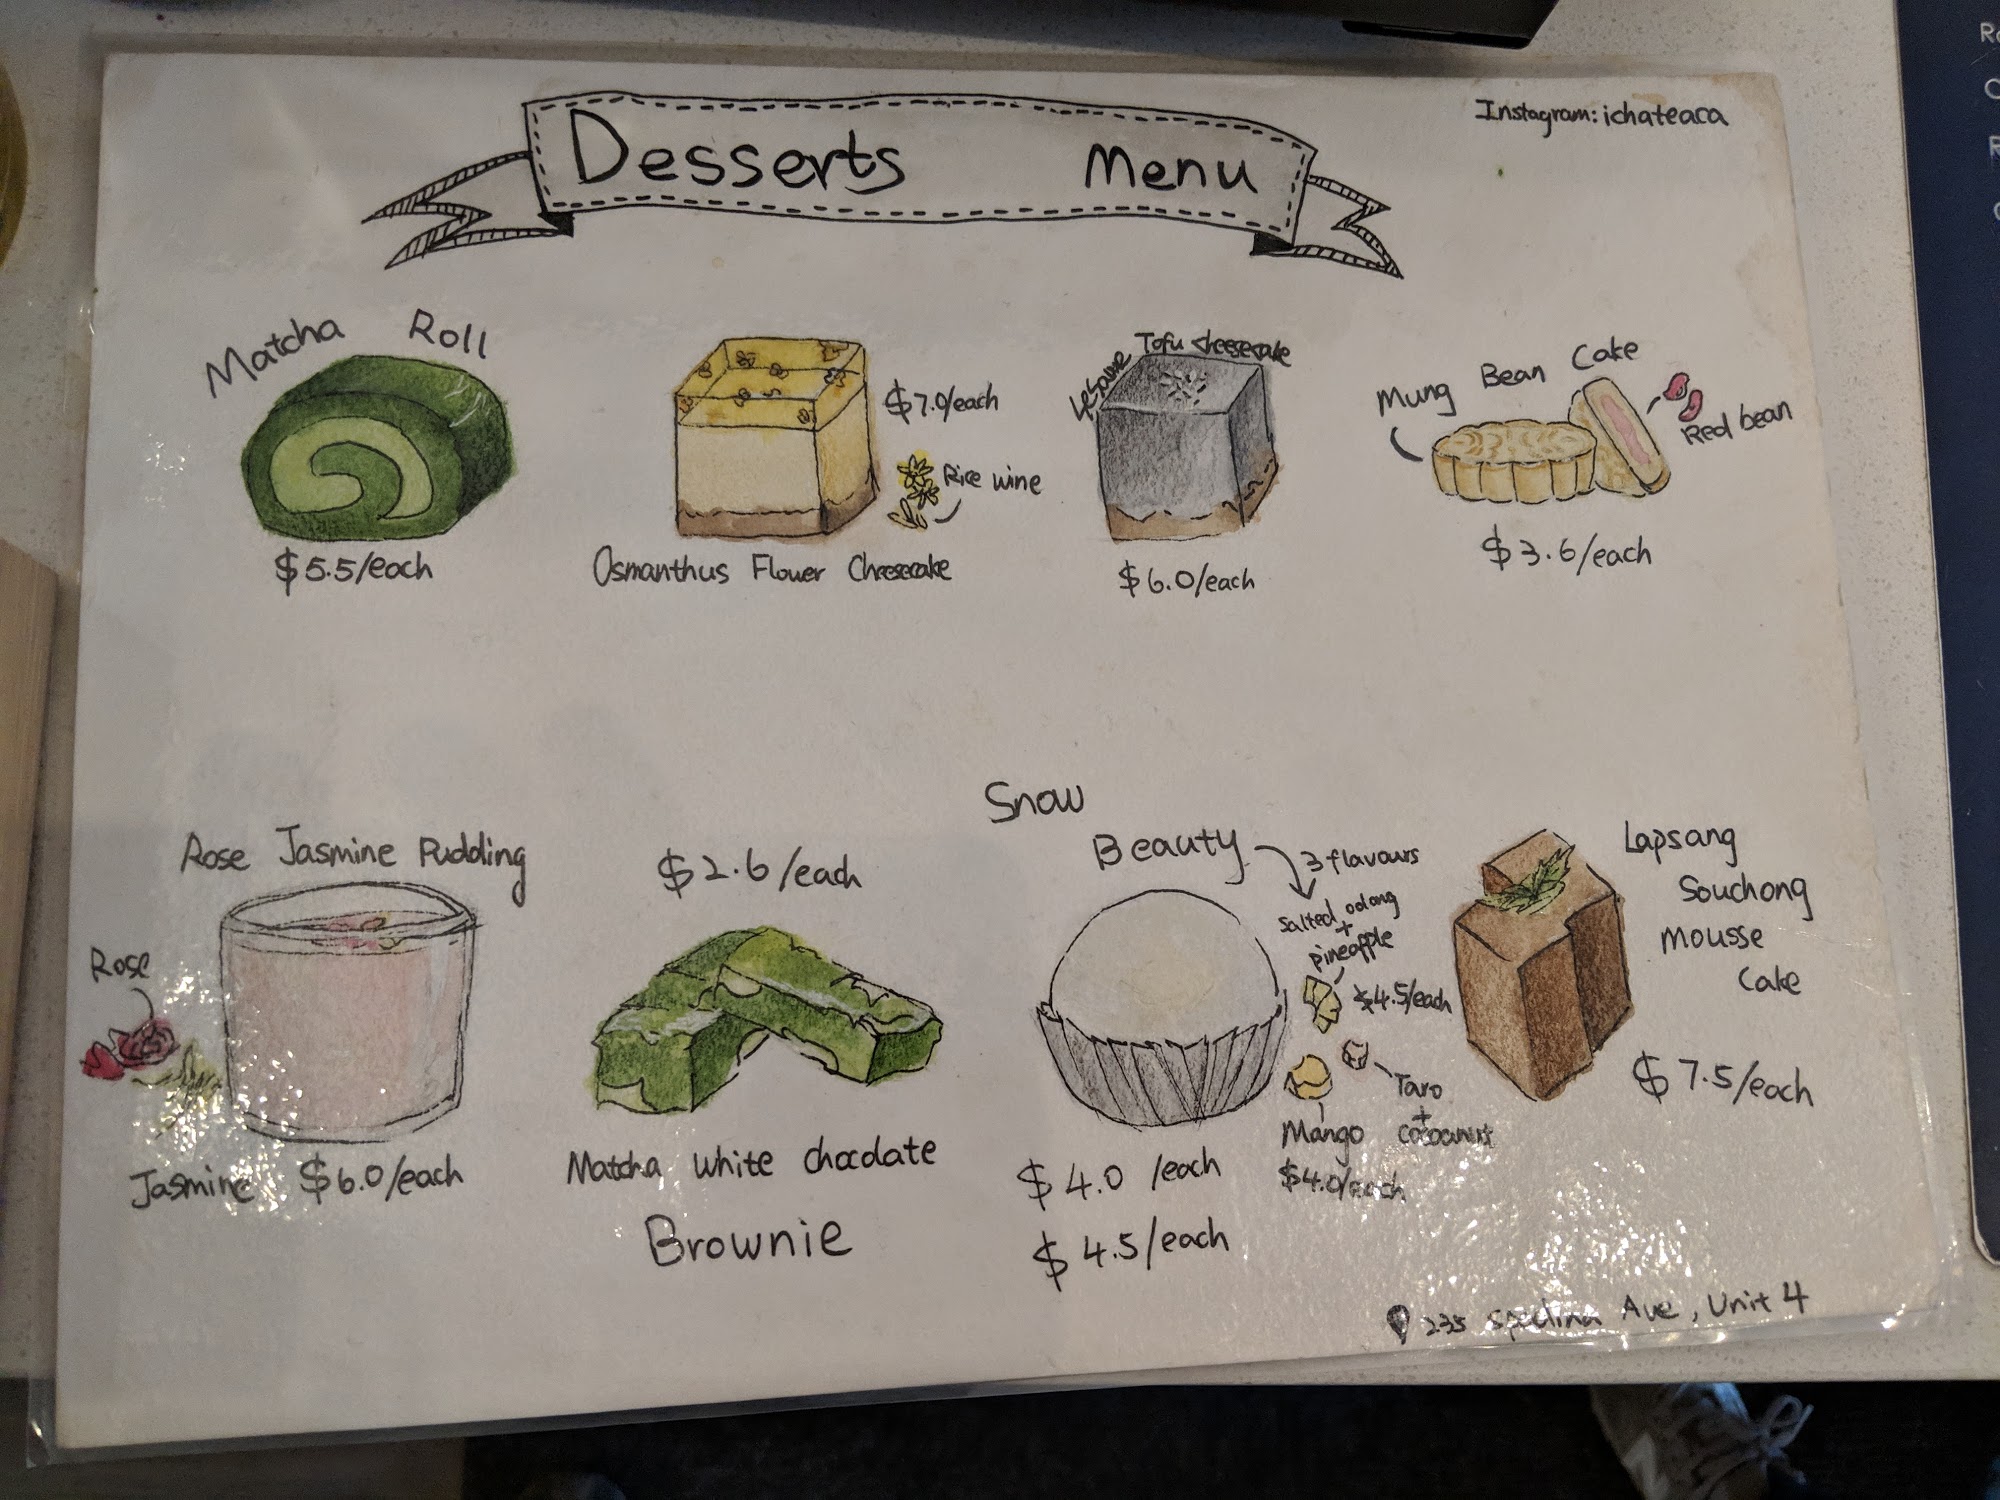 Instagram: ichateaca
Desserts Menu
Matcha Roll
$5.5/each
$7.0/each
Rice wine
Osmanthus Flower Cheesecake
Tofu cheesecake
$6.0/each
Mung Bean Cake
Red bean
$3.6/each
Rose Jasmine Pudding
Rose
Jasmine
$6.0/each
$2.6/each
Matcha white chocolate
Brownie
Snow
Beauty
3 flavours
Salted oolong
+
pineapple
$4.5/each
Taro
+
cocoanut
Mango
$4.0/each
$4.0 /each
$4.5/each
Lapsang
Souchong
Mousse
Cake
$7.5/each
235 Spadina Ave, Unit 4